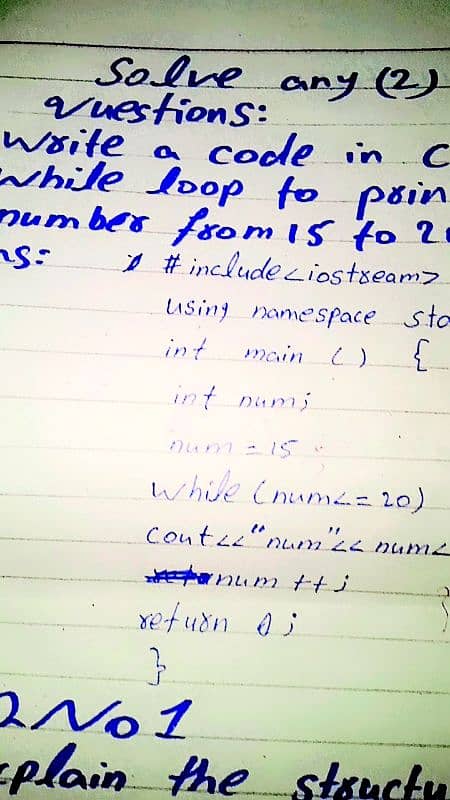 Solve any (2)
Questions:
Write a code in C
while loop to prin
number from 15 to 2
ns:
# include <iostream>
using namespace std
int main () {
int num;
num = 15
while (num <= 20)
cout << "num" << num <
num ++;
return 0;
}
}
No 1
xplain the structu